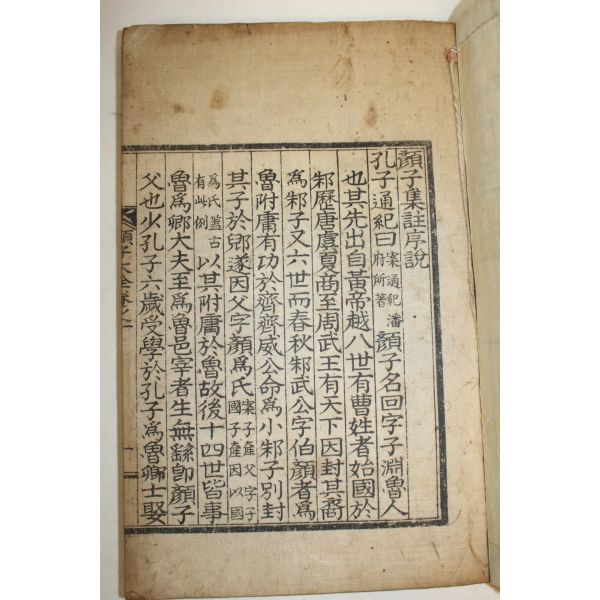 顏子集註序說
孔子通紀曰案通紀潘府所著顏子名回字子淵魯人
也其先出自黃帝越八世有曹姓者始國於
邾歷唐虞夏商至周武王有天下因封其裔
爲邾子又六世而春秋邾武公字伯顏者爲
魯附庸有功於齊齊威公命爲小邾子別封
其子於郳遂因父字顏爲氏案子產父字子國子產因以國
爲氏蓋古有此例以其附庸於魯故後十四世皆事
魯爲卿大夫至爲魯邑宰者生無繇卽顏子
父也少孔子六歲受學於孔子爲魯卿士娶
顏子大全卷之一
一